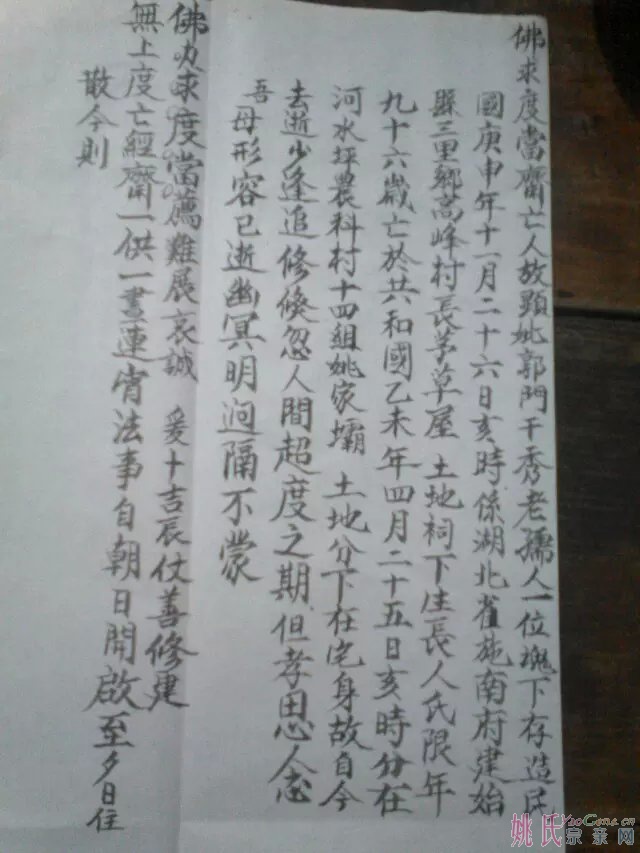 佛求度當齋亡人故顕妣郭門干秀老孺人一位塊下存造民
國庚申年十一月二十六日亥時係湖北省施南府建始
縣三里鄉高峰村長茅草屋土地祠下生長人氏限年
九十六歲亡於共和國乙未年四月二十五日亥時分在
河水坪農科村十四組姚家壩土地分下在宅身故自今
去逝少逢追修倏忽人間超度之期但孝思人忘
吾母形容已逝幽冥明迥隔不蒙
佛力求度當薦難展哀誠 爰十吉辰仗善修建
無上度亡經齋一供一晝連宵法事自朝日開啟至夕日住
散今則
姚氏宗亲网
YaoGens.cn